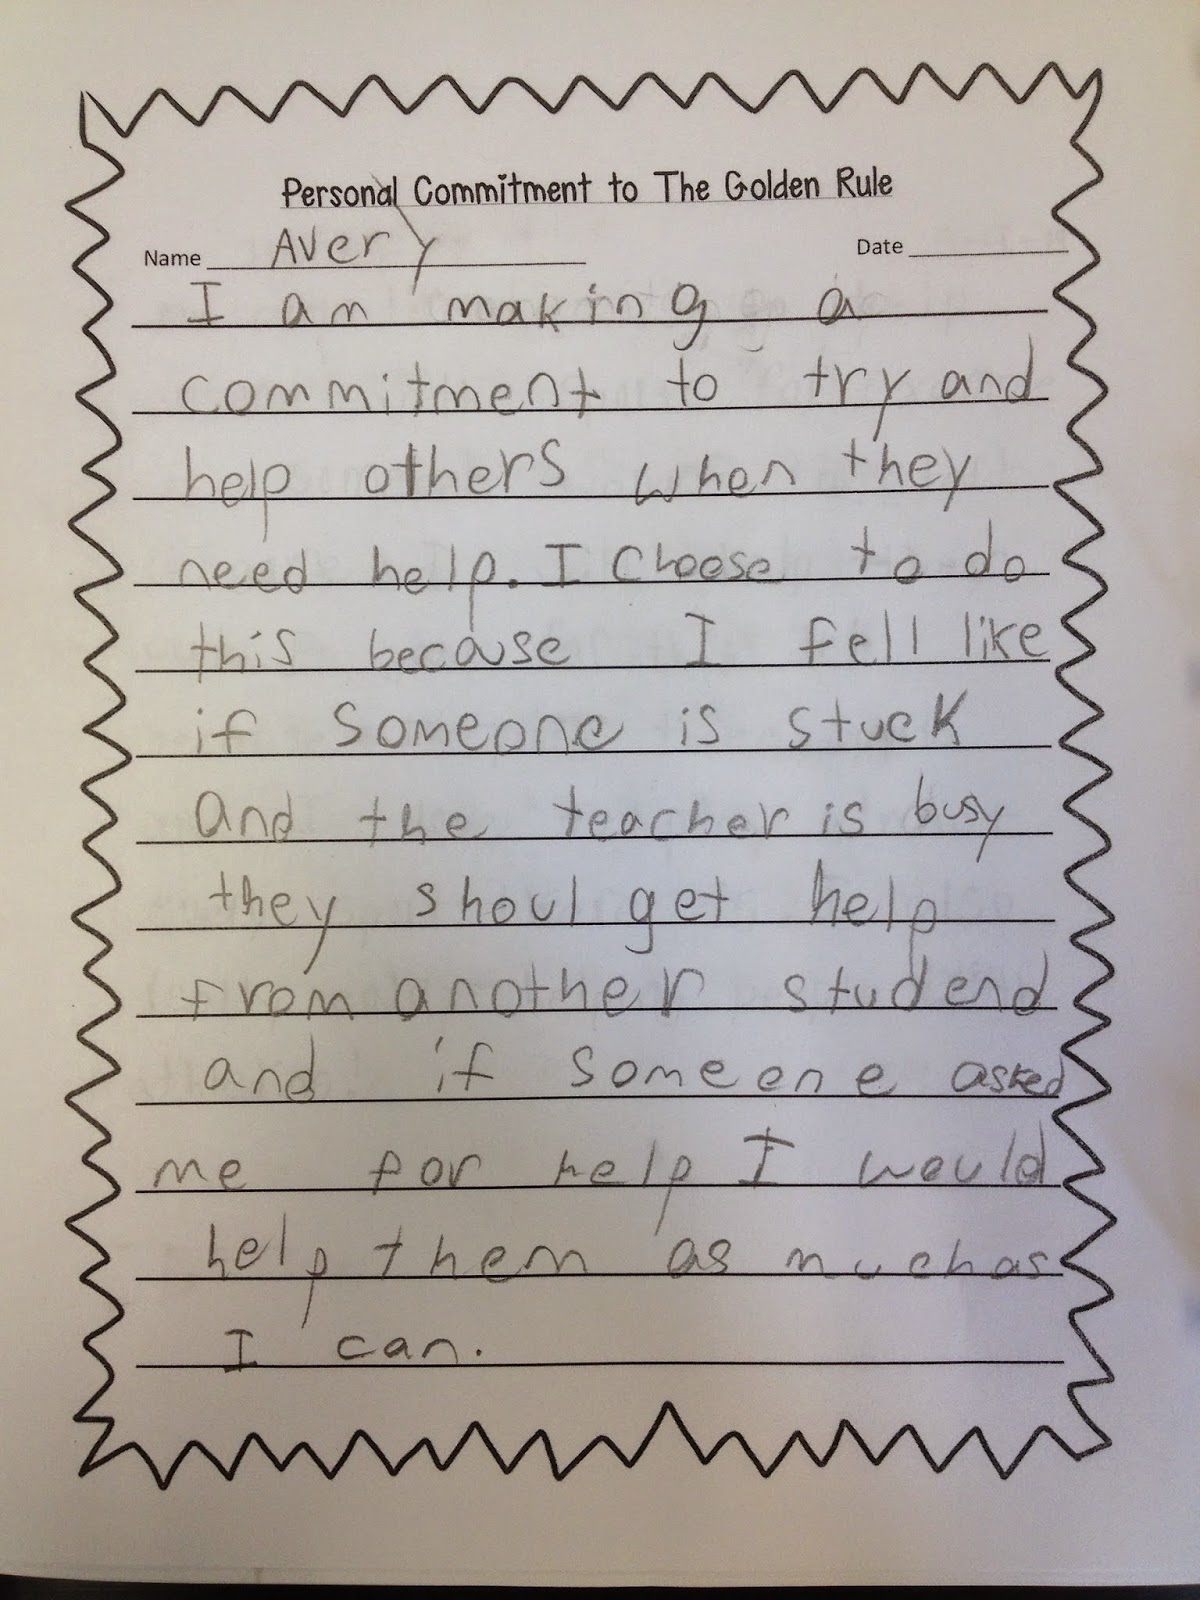 Personal Commitment to The Golden Rule
Name Avery Date
I am making a
commitment to try and
help others when they
need help. I choose to do
this because I fell like
if someone is stuck
and the teacher is busy
they shoul get help
from another studend
and if someene asked
me for help I would
help them as much as
I can.